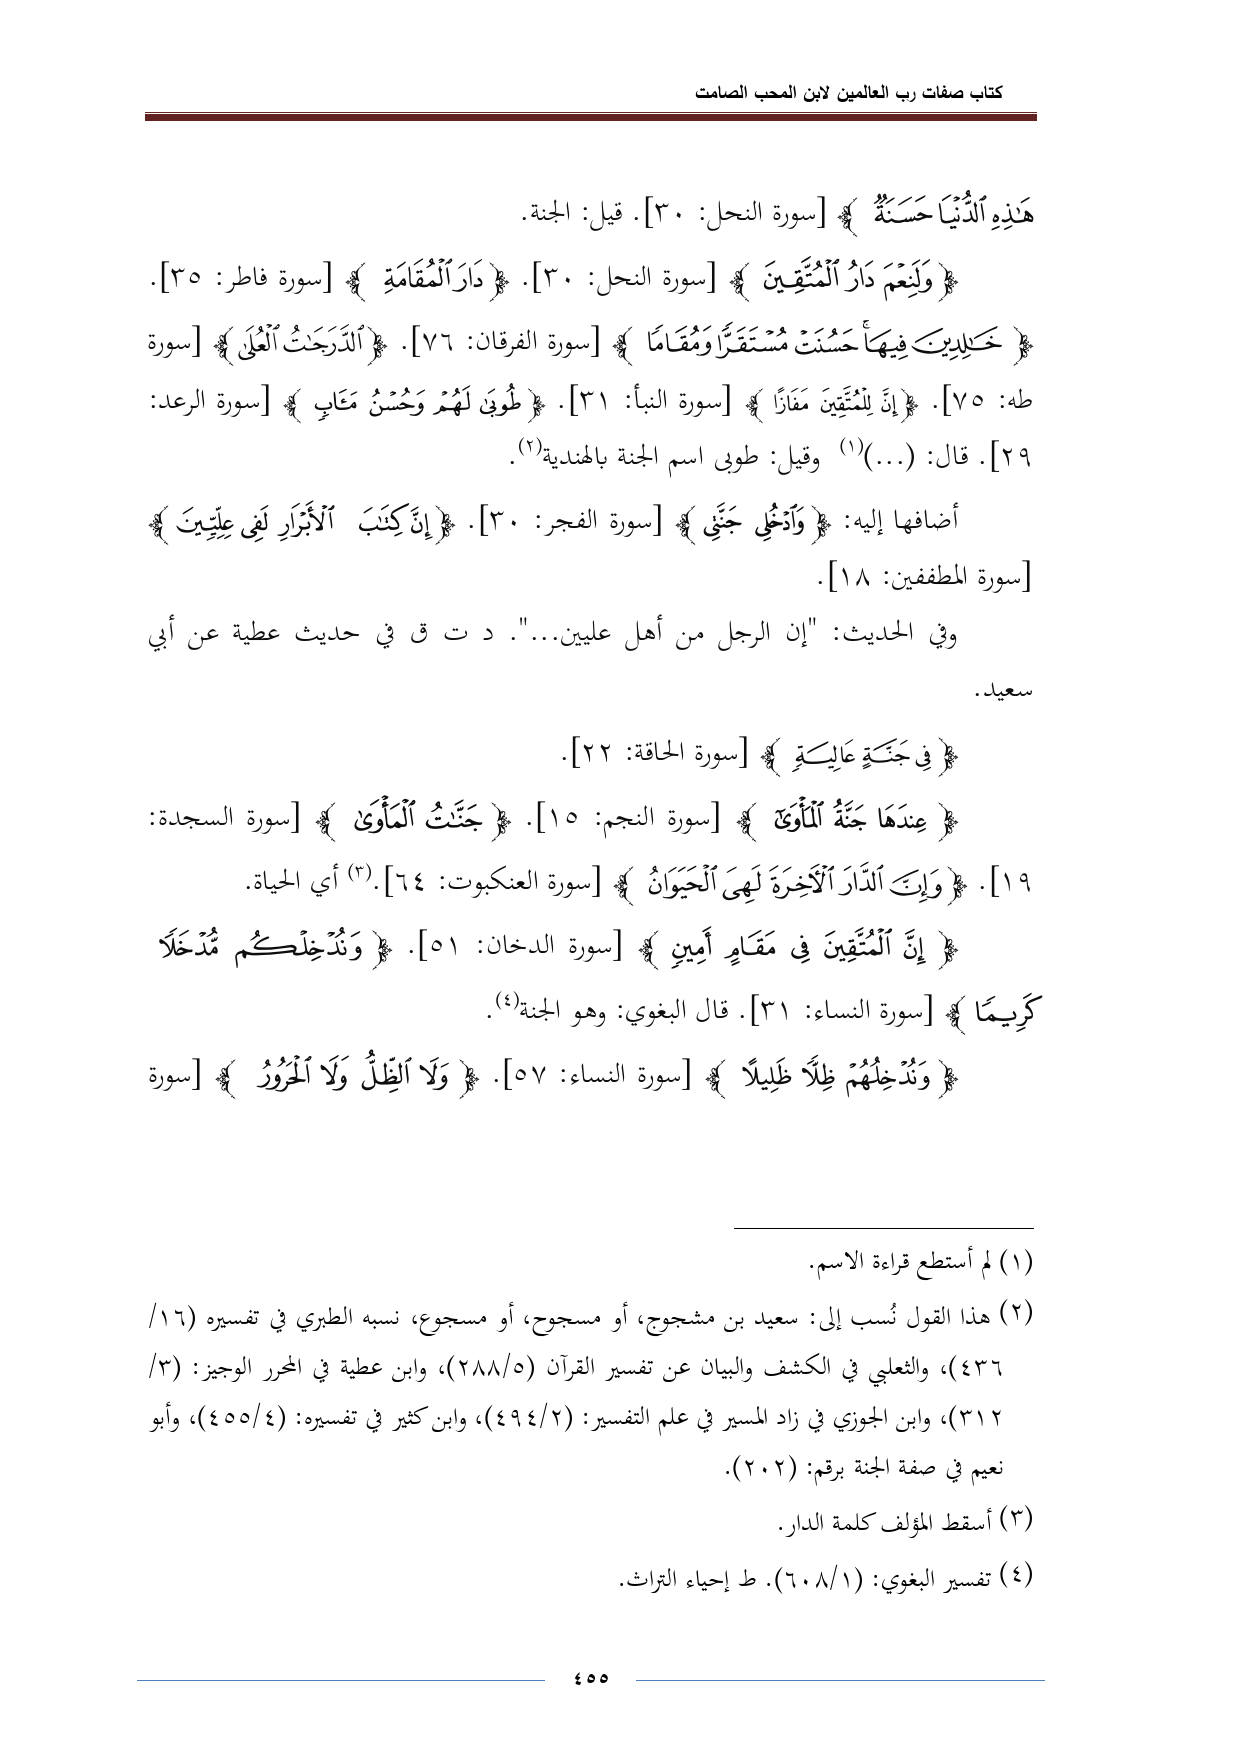 كتاب صفات رب العالمين لابن المحب الصامت
هَٰذِهِ ٱلدُّنْيَا حَسَنَةٌ ﴾ [سورة النحل: ٣٠]. قيل: الجنة.
﴿ وَلَنِعْمَ دَارُ ٱلْمُتَّقِينَ ﴾ [سورة النحل: ٣٠]. ﴿ دَارَ ٱلْمُقَامَةِ ﴾ [سورة فاطر: ٣٥].
﴿ خَٰلِدِينَ فِيهَا ۚ حَسُنَتْ مُسْتَقَرًّا وَمُقَامًا ﴾ [سورة الفرقان: ٧٦]. ﴿ ٱلدَّرَجَٰتُ ٱلْعُلَىٰ ﴾ [سورة
طه: ٧٥]. ﴿ إِنَّ لِلْمُتَّقِينَ مَفَازًا ﴾ [سورة النبأ: ٣١]. ﴿ طُوبَىٰ لَهُمْ وَحُسْنُ مَـَٔابٍ ﴾ [سورة الرعد:
٢٩]. قال: (...)(١) وقيل: طوبى اسم الجنة بالهندية(٢).
أضافها إليه: ﴿ وَٱدْخُلِى جَنَّتِى ﴾ [سورة الفجر: ٣٠]. ﴿ إِنَّ كِتَٰبَ ٱلْأَبْرَارِ لَفِى عِلِّيِّينَ ﴾
[سورة المطففين: ١٨].
وفي الحديث: "إن الرجل من أهل عليين...". د ت ق في حديث عطية عن أبي
سعيد.
﴿ فِى جَنَّةٍ عَالِيَةٍ ﴾ [سورة الحاقة: ٢٢].
﴿ عِندَهَا جَنَّةُ ٱلْمَأْوَىٰٓ ﴾ [سورة النجم: ١٥]. ﴿ جَنَّٰتُ ٱلْمَأْوَىٰ ﴾ [سورة السجدة:
١٩]. ﴿ وَإِنَّ ٱلدَّارَ ٱلْأَخِرَةَ لَهِىَ ٱلْحَيَوَانُ ﴾ [سورة العنكبوت: ٦٤].(٣) أي الحياة.
﴿ إِنَّ ٱلْمُتَّقِينَ فِى مَقَامٍ أَمِينٍ ﴾ [سورة الدخان: ٥١]. ﴿ وَنُدْخِلْكُم مُّدْخَلًا
كَرِيمًا ﴾ [سورة النساء: ٣١]. قال البغوي: وهو الجنة(٤).
﴿ وَنُدْخِلُهُمْ ظِلًّا ظَلِيلًا ﴾ [سورة النساء: ٥٧]. ﴿ وَلَا ٱلظِّلُّ وَلَا ٱلْحَرُورُ ﴾ [سورة
(١) لم أستطع قراءة الاسم.
(٢) هذا القول نُسب إلى: سعيد بن مشجوج، أو مسجوح، أو مسجوع، نسبه الطبري في تفسيره (١٦/
٤٣٦)، والثعلبي في الكشف والبيان عن تفسير القرآن (٢٨٨/٥)، وابن عطية في المحرر الوجيز: (٣/
٣١٢)، وابن الجوزي في زاد المسير في علم التفسير: (٤٩٤/٢)، وابن كثير في تفسيره: (٤٥٥/٤)، وأبو
نعيم في صفة الجنة برقم: (٢٠٢).
(٣) أسقط المؤلف كلمة الدار.
(٤) تفسير البغوي: (٦٠٨/١). ط إحياء التراث.
٤٥٥